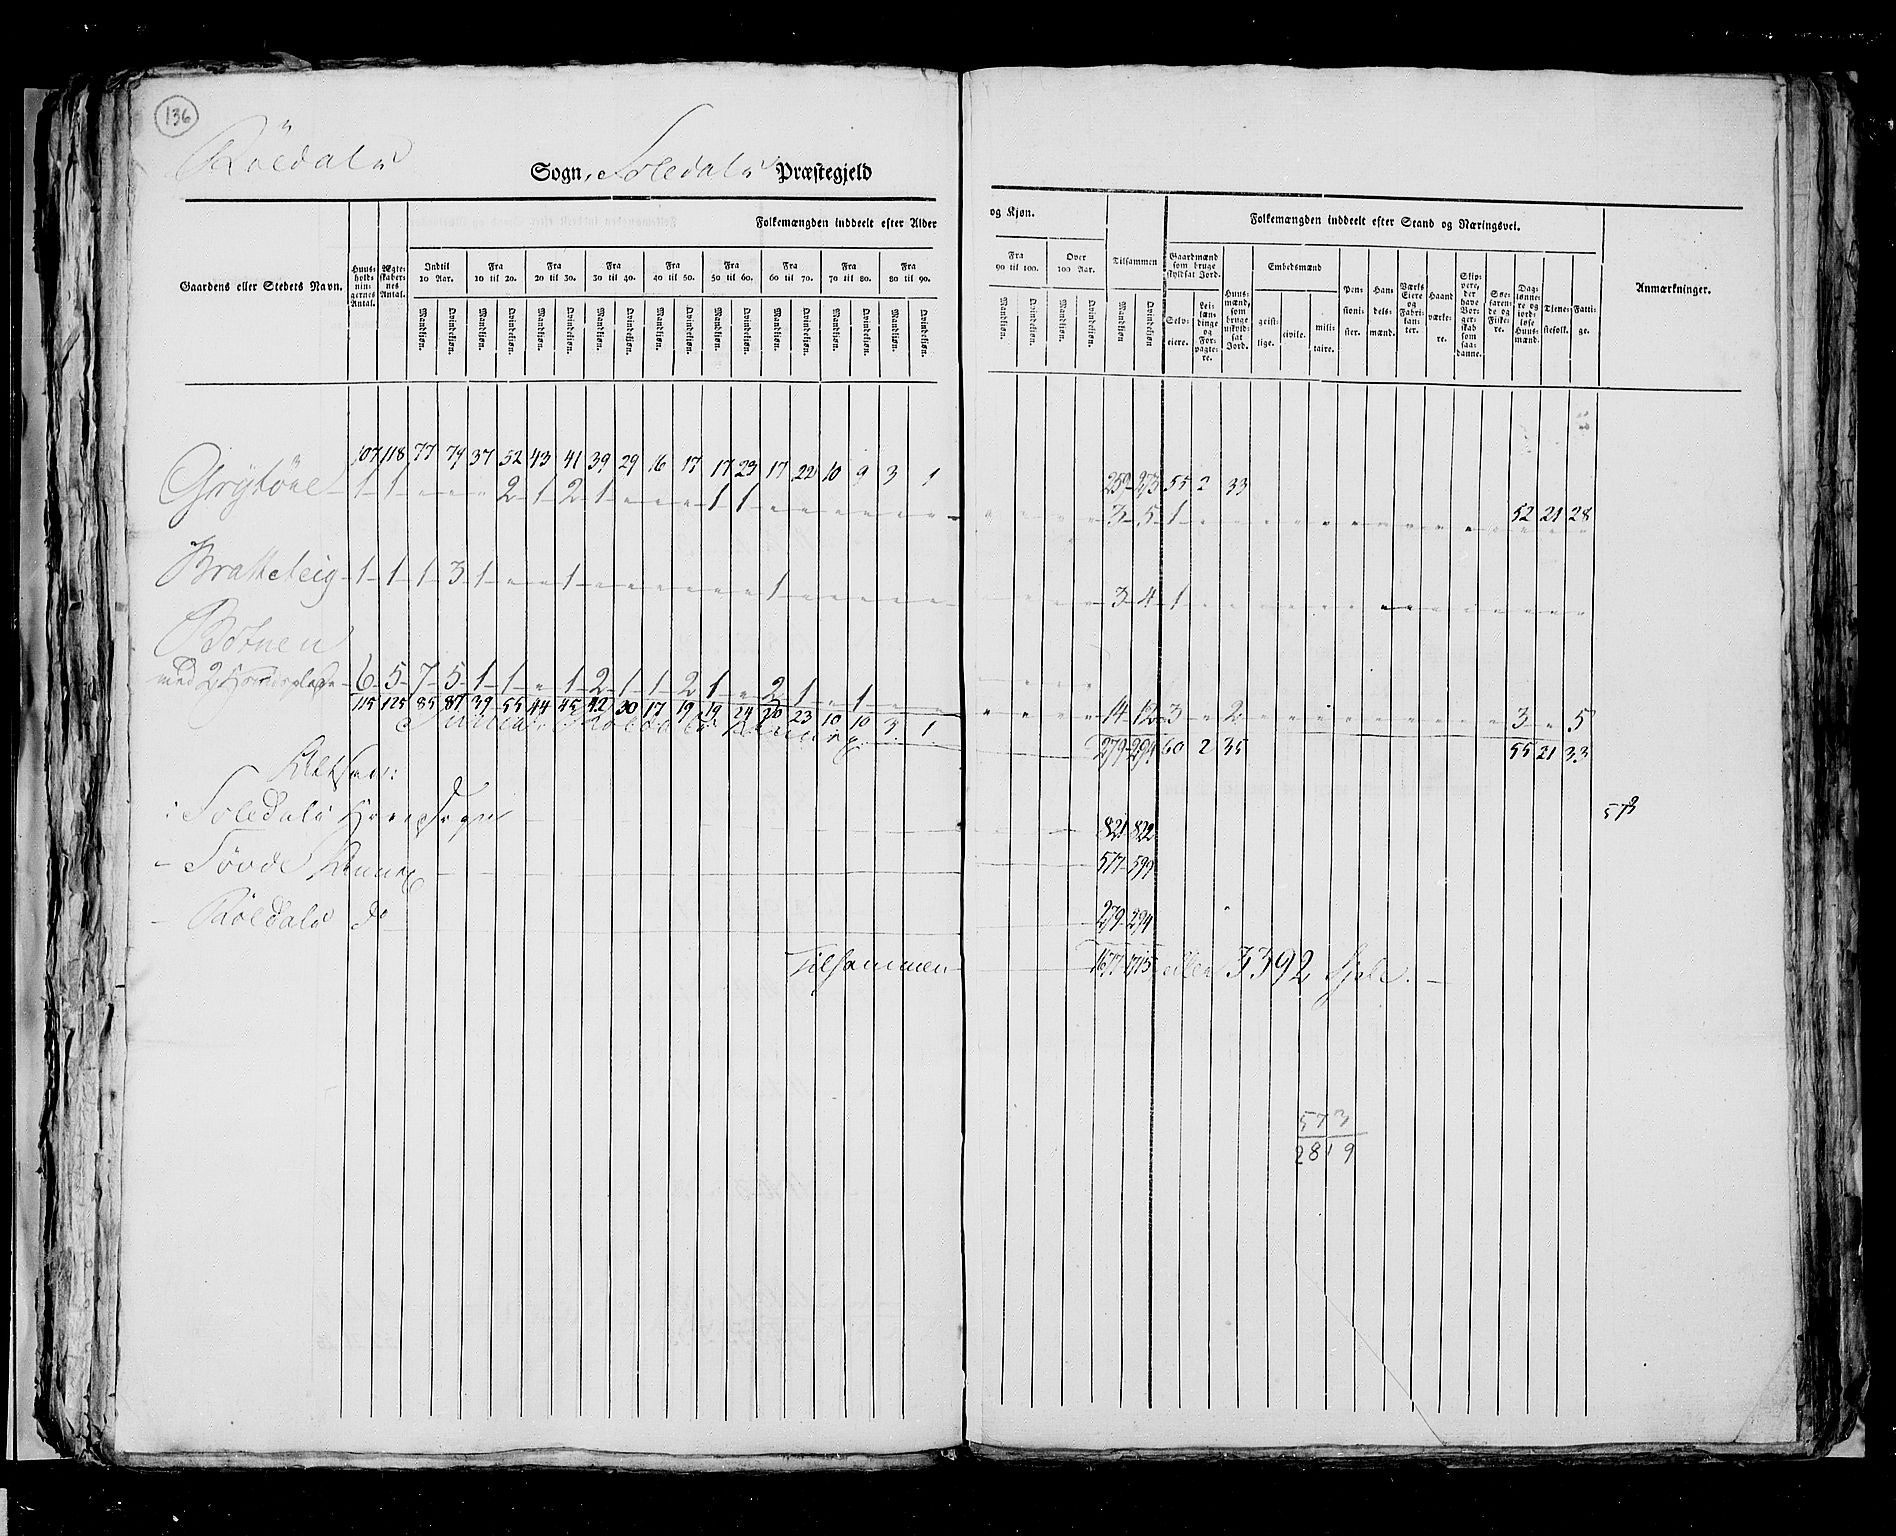 136
Röldals Sogn, Soledals Præstegjeld
Folkemængden inddeelt efter Alder og Kjøn. Folkemængden inddeelt efter Stand og Næringsvei.
Gaardens eller Stedets Navn. Huus-holdningernes Antal. Ægteskabernes Antal. Indtil 10 Aar. Fra 10 til 20. Fra 20 til 30. Fra 30 til 40. Fra 40 til 50. Fra 50 til 60. Fra 60 til 70. Fra 70 til 80. Fra 80 til 90. Fra 90 til 100. Over 100 Aar. Tilsammen Gaardmænd som bruge skyldsat Jord. Huusmænd, som bruge uskyldsat Jord. Embedsmænd Pensionister. Handelsmænd. Værks Eiere og Fabrikanter. Haandværkere. Skippere, der have Borgerskab som saadanne. Søefarende og Fiskere. Dagslønnere og jordløse Huusmænd. Tjenestefolk. Fattige. Anmærkninger.
Mandkiøn. Qvindekiøn. Mandkiøn. Qvindekiøn. Mandkiøn. Qvindekiøn. Mandkiøn. Qvindekiøn. Mandkiøn. Qvindekiøn. Mandkiøn. Qvindekiøn. Mandkiøn. Qvindekiøn. Mandkiøn. Qvindekiøn. Mandkiøn. Qvindekiøn. Mandkiøn. Qvindekiøn. Mandkiøn. Qvindekiøn. Mandkiøn Qvindekiøn Selveiere. Leilændinge og Forpagtere. geistlige. civile. militaire.
107 118 77 79 37 52 43 41 39 29 16 17 17 23 17 22 10 9 3 1 259 273 55 2 33 52 21 28
Grytöne 1 1 " " " 2 1 2 1 " " " 1 1 " " " " " " " " " " 3 5 1 " " " " " " " " " " " " " "
Bratteteig 1 1 1 3 1 " " 1 " " " " " " 1 " " " " " " " " " 3 4 1 " " " " " " " " " " " " " "
Botnen
med 2 Huusplads 6 5 7 5 1 1 " 1 2 1 1 2 1 " 2 1 " 1 " " " " " " 14 12 3 " 2 " " " " " " " " " 3 " 5
115 125 85 87 39 55 44 45 42 30 17 19 19 24 20 23 10 10 3 1 279 294 60 2 35 55 21 33
Röldals Annex
Altsaa:
i Soledals Hovedsogn 821 822
573
- Sövde Annex 577 599
- Röldals do 279 294
Tilsammen 1677 1715 eller 3392 Sjele.
573
2819